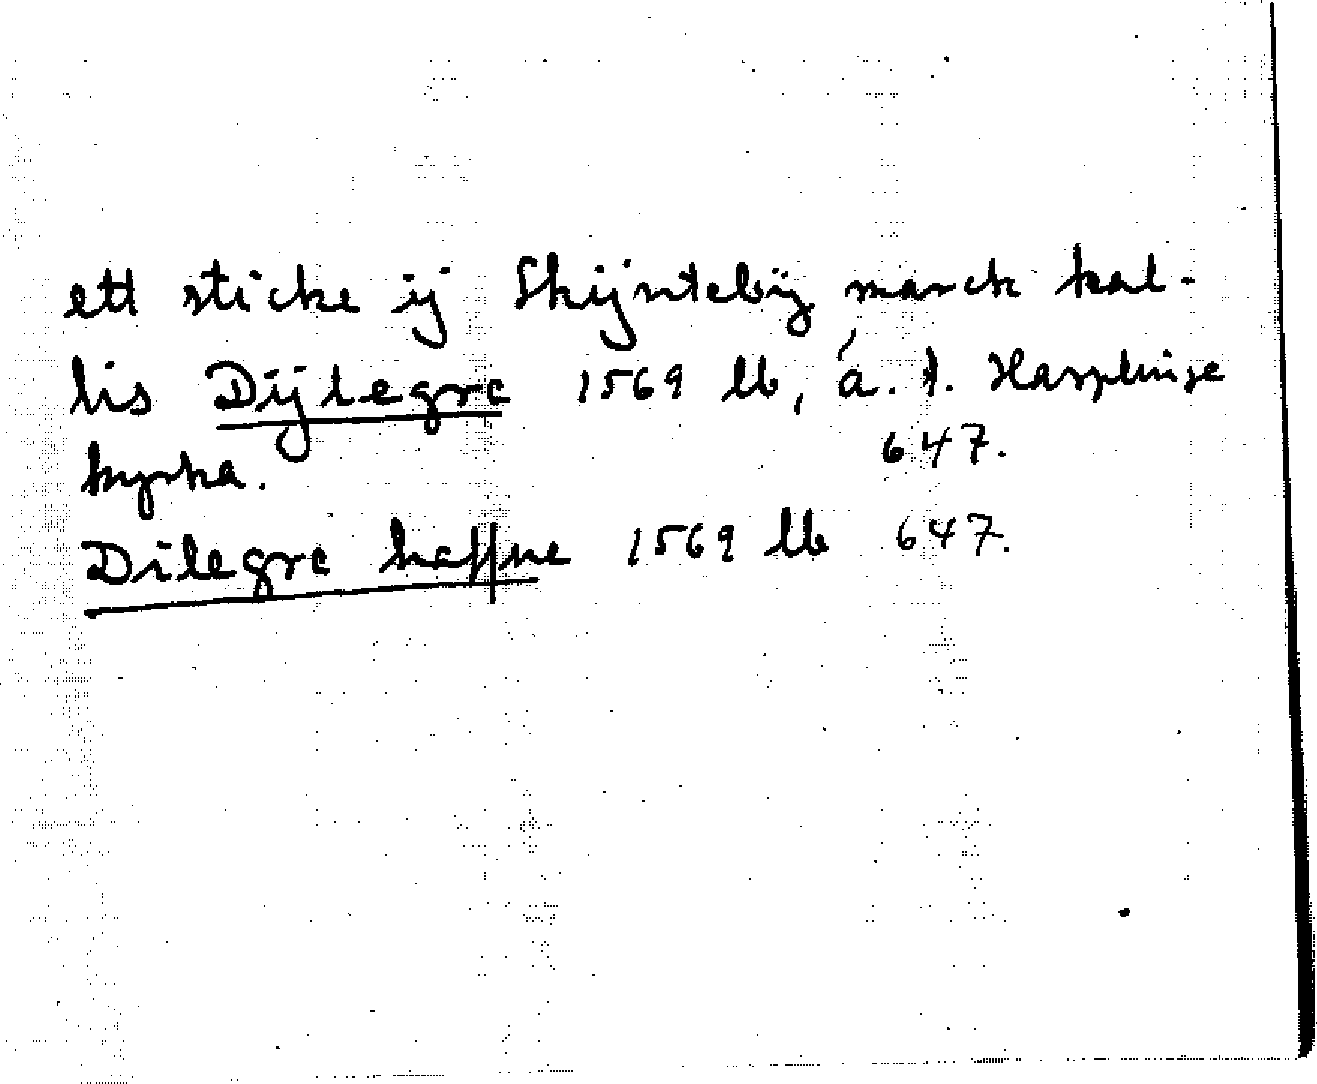 ett sticke ij Skijntebÿ marck kal-
lis Dijlegre 1569 lb, á. t. Harplinge
kyrka. 647.
Dilegre haffne 1569 lb 647.